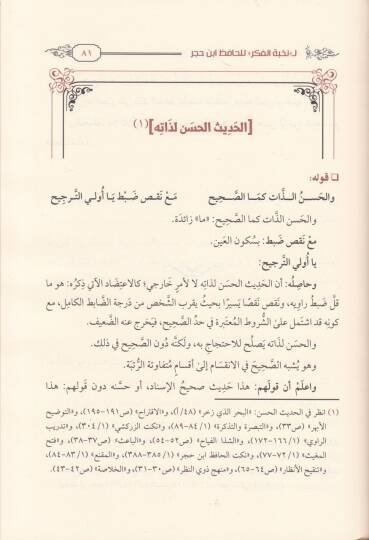 لـ«نخبة الفكر» للحافظ ابن حجر
٨١
[الحَدِيث الحسَن لذَاتِه] (١)
❏ قوله:
والحَسَــنُ الــذَّات كمَــا الصَّحِيح    مَــعْ نَقـص ضَبْـط يَـا أُولـي التَّرجِيح
والحَسن الذَّات كما الصَّحِيح: «ما» زائدَة.
معْ نَقص ضَبط: بسُكون العَين.
يا أُولي التَّرجيح:
وحاصِلُه: أن الحَدِيث الحسَن لذاتِه لا لأمرٍ خارجي؛ كالاعتِضَاد الآتي ذِكرُه: هو ما
قلَّ ضَبطُ راوِيه، ونَقص نَقصًا يَسيرًا بحيثُ يقرب الشَّخص من دَرجة الضَّابط الكامِل، مع
كونِه قد اشتَمل على الشُّروط المُعتَبرة في حدِّ الصَّحِيح، فيَخرج عنه الضَّعيف.
والحسَن لذَاته يَصلُح للاحتِجاجِ به، ولكنَّه دُون الصَّحِيح في ذلك.
وهو يُشبه الصَّحِيحَ في الانقسَام إلى أقسَامٍ مُتفاوتة الرُّتبَة.
واعلَمْ أن قولَهم: هذا حَدِيث صحيحُ الإسنادِ، أو حسَنه دون قَولهم: هذا
(١) انظر في الحديث الحسن: «البحر الذي زخر» (٤٨/أ)، و«الاقتراح» (ص١٩١-١٩٥)، و«التوضيح
الأبهر» (ص٣٣)، و«التبصرة والتذكرة» (١/ ٨٤-٨٩)، و«نكت الزركشي» (١/ ٣٠٤)، و«تدريب
الراوي» (١/ ١٦٦-١٧٢)، و«الشذا الفياح» (ص٥٢-٥٤)، و«الباعث» (ص٣٧-٣٨)، و«فتح
المغيث» (١/ ٧٢-٧٧)، و«نكت الحافظ ابن حجر» (١/ ٣٨٥-٣٨٨)، و«المقنع» (١/ ٨٣-٨٤)،
و«تنقيح الأنظار» (ص٦٤-٦٥)، و«منهج ذوي النظر» (ص٣٠-٣١)، و«الخلاصة» (ص٤٢-٤٣).